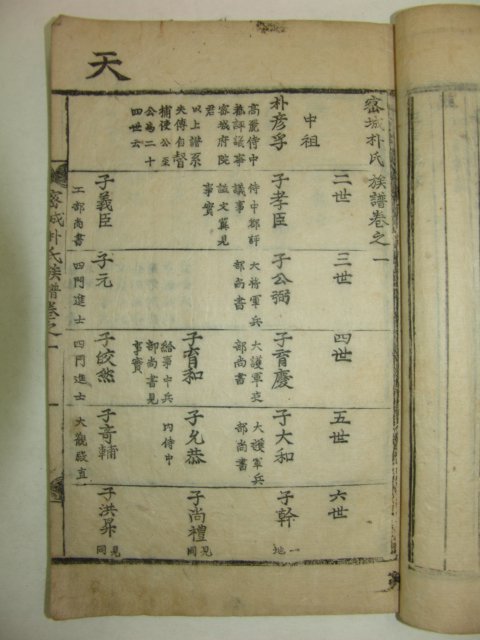 天
密城朴氏族譜卷之一
中祖
朴彦孚
高麗侍中
兼評議事
密城府院
君
以上譜系
失傳自督
捕使公至
公爲二十
四世云
二世
子孝臣
侍中都評
議事
諡文翼見
事實
子義臣
工部尚書
三世
子公弼
大將軍兵
部尚書
子元
四門進士
四世
子育慶
大護軍吏
部尚書
子育和
給事中兵
部尚書見
事實
子皎然
四門進士
五世
子大和
大護軍兵
部尚書
子允恭
內侍中
子奇輔
大觀殿直
六世
子幹
一地
子尚禮
見同
子洪昇
見同
密城朴氏族譜卷之一